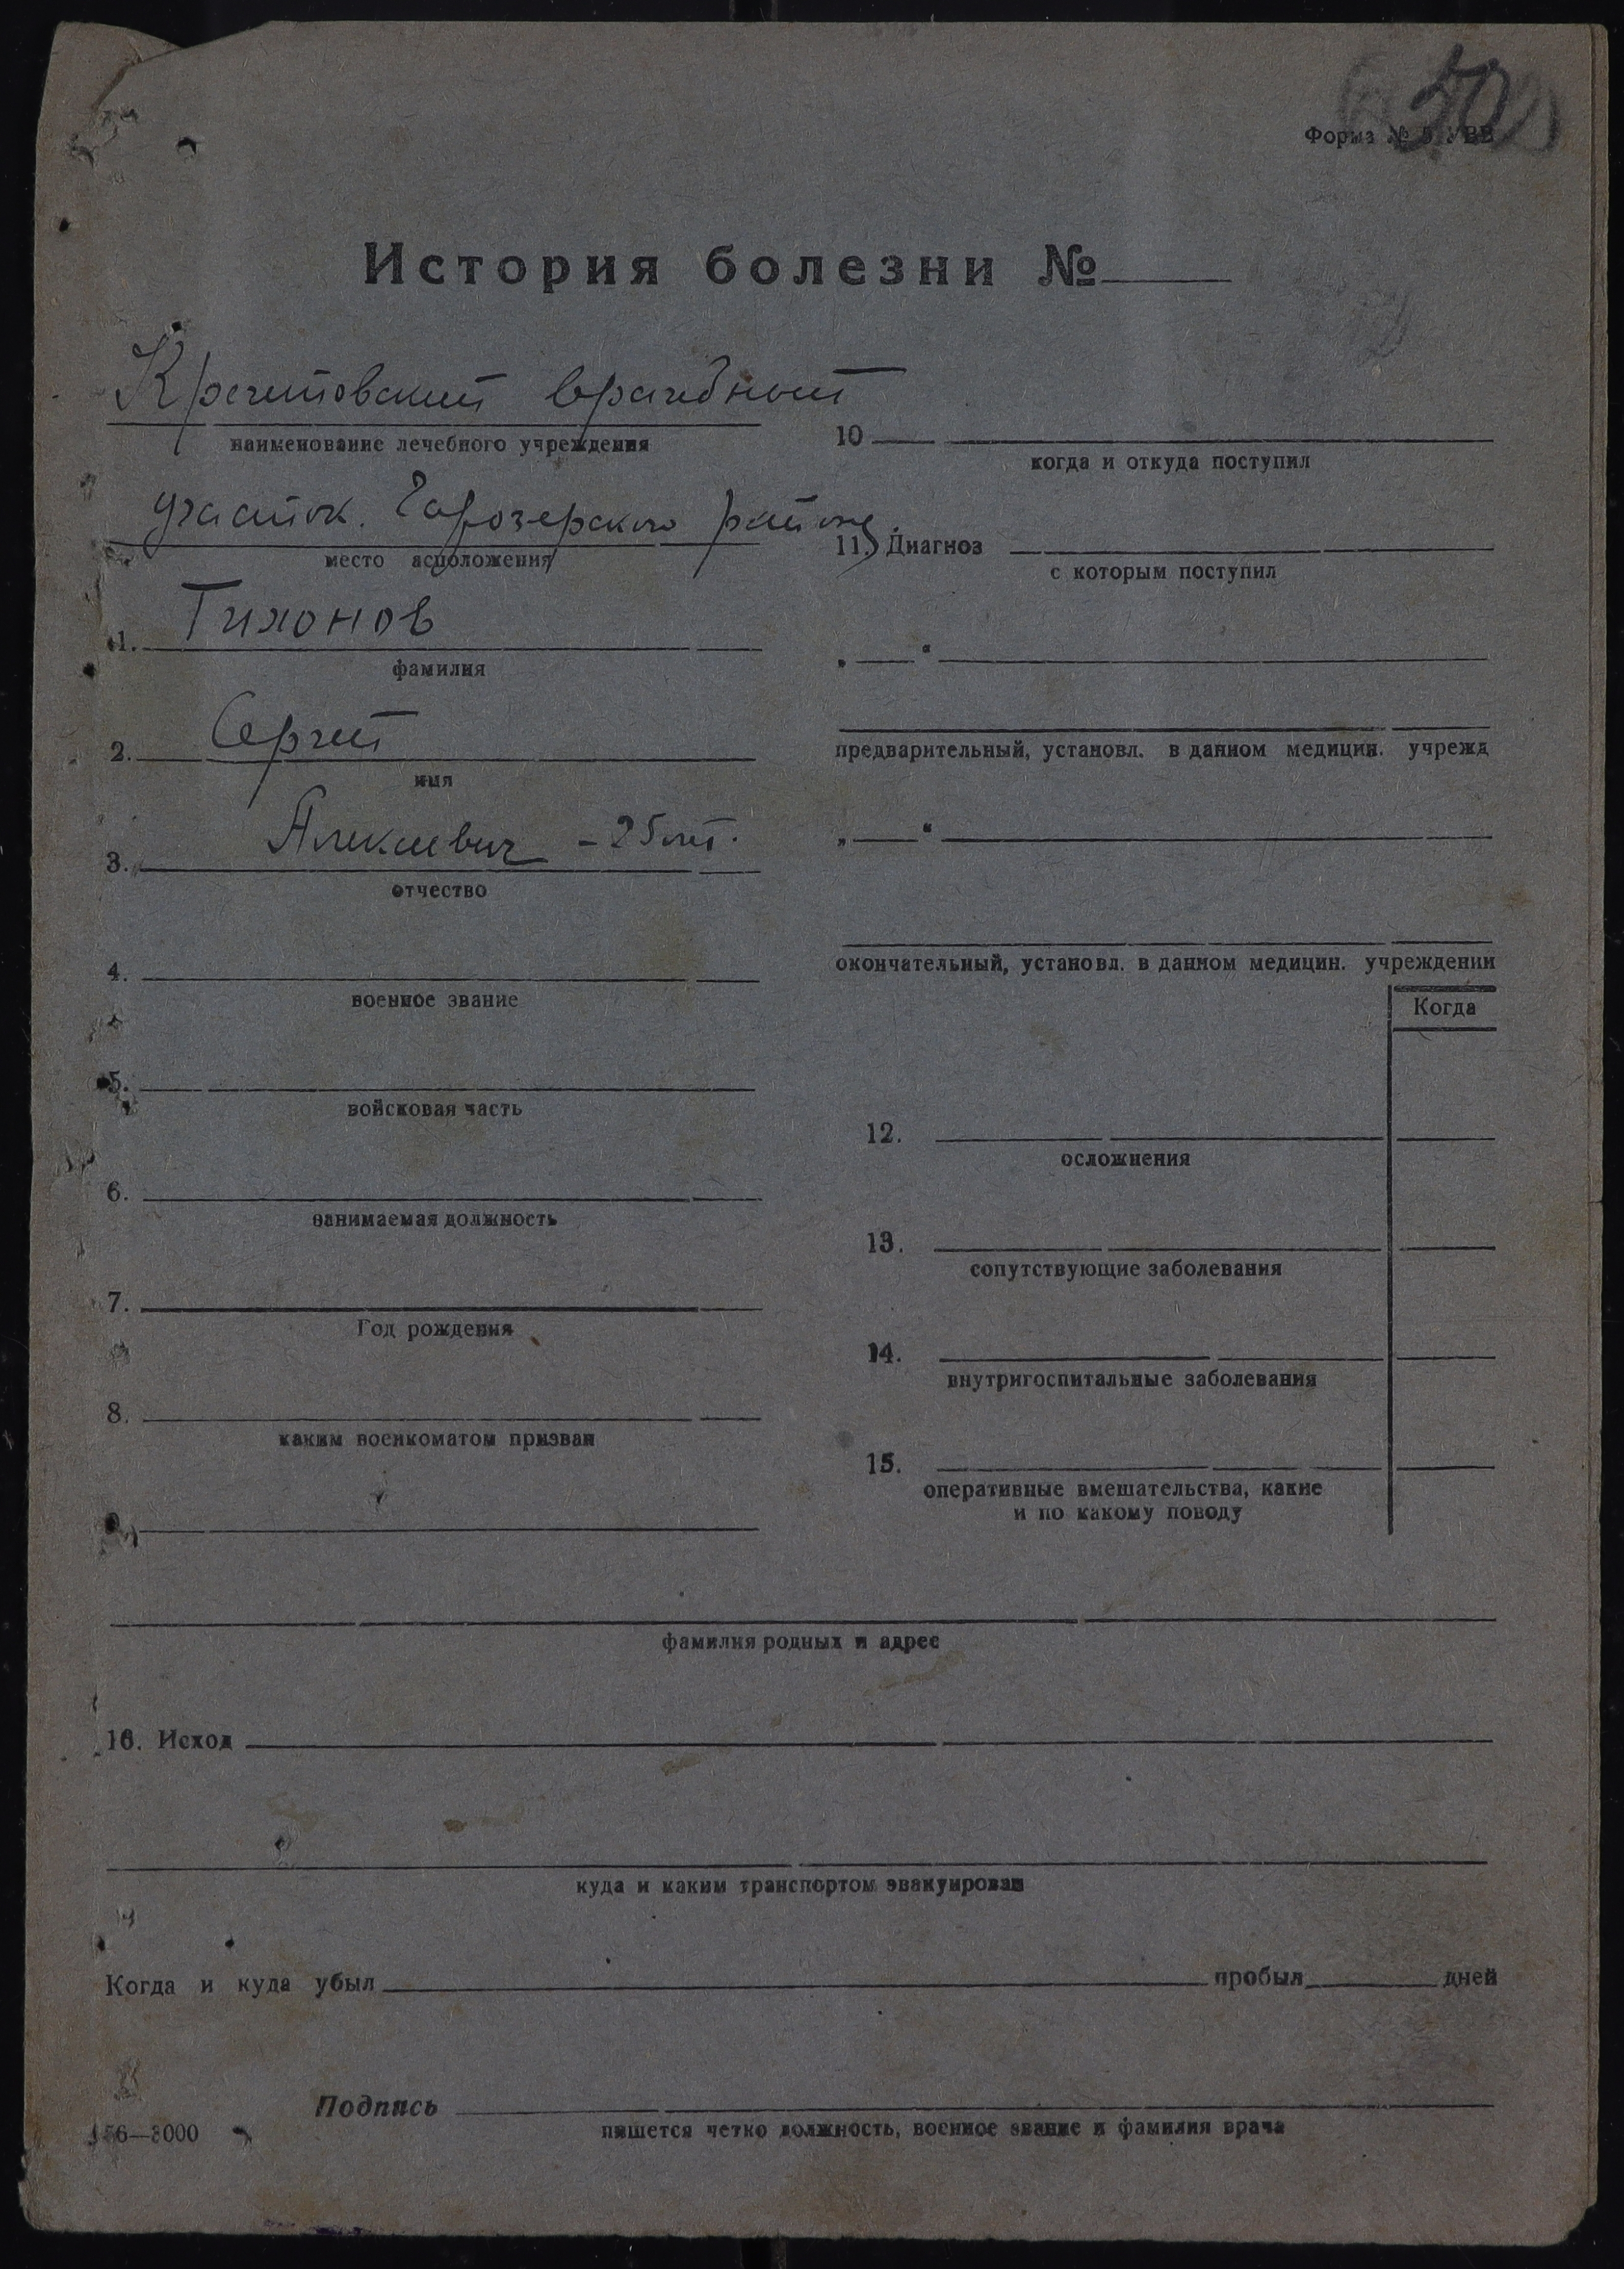 50
Форма № 5 УВВ
История болезни №
Кречетовский врачебный
наименование лечебного учреждения
участок. Чарозерского района.
место асположения
1. Тихонов
фамилия
2. Сергей
имя
3. Алексеевич - 25 лет.
отчество
4.
военное звание
5.
войсковая часть
6.
занимаемая должность
7.
Год рождения
8.
каким военкоматом призван
9.
10
когда и откуда поступил
11. Диагноз
с которым поступил
„ “
предварительный, установл. в данном медицин. учрежд
„ “
окончательный, установл. в данном медицин. учреждении
Когда
12.
осложнения
13.
сопутствующие заболевания
14.
внутригоспитальные заболевания
15.
оперативные вмешательства, какие
и по какому поводу
фамилия родных и адрес
16. Исход
куда и каким транспортом эвакуирован
Когда и куда убыл пробыл дней
Подпись
пишется четко должность, военное звание и фамилия врача
156—3000